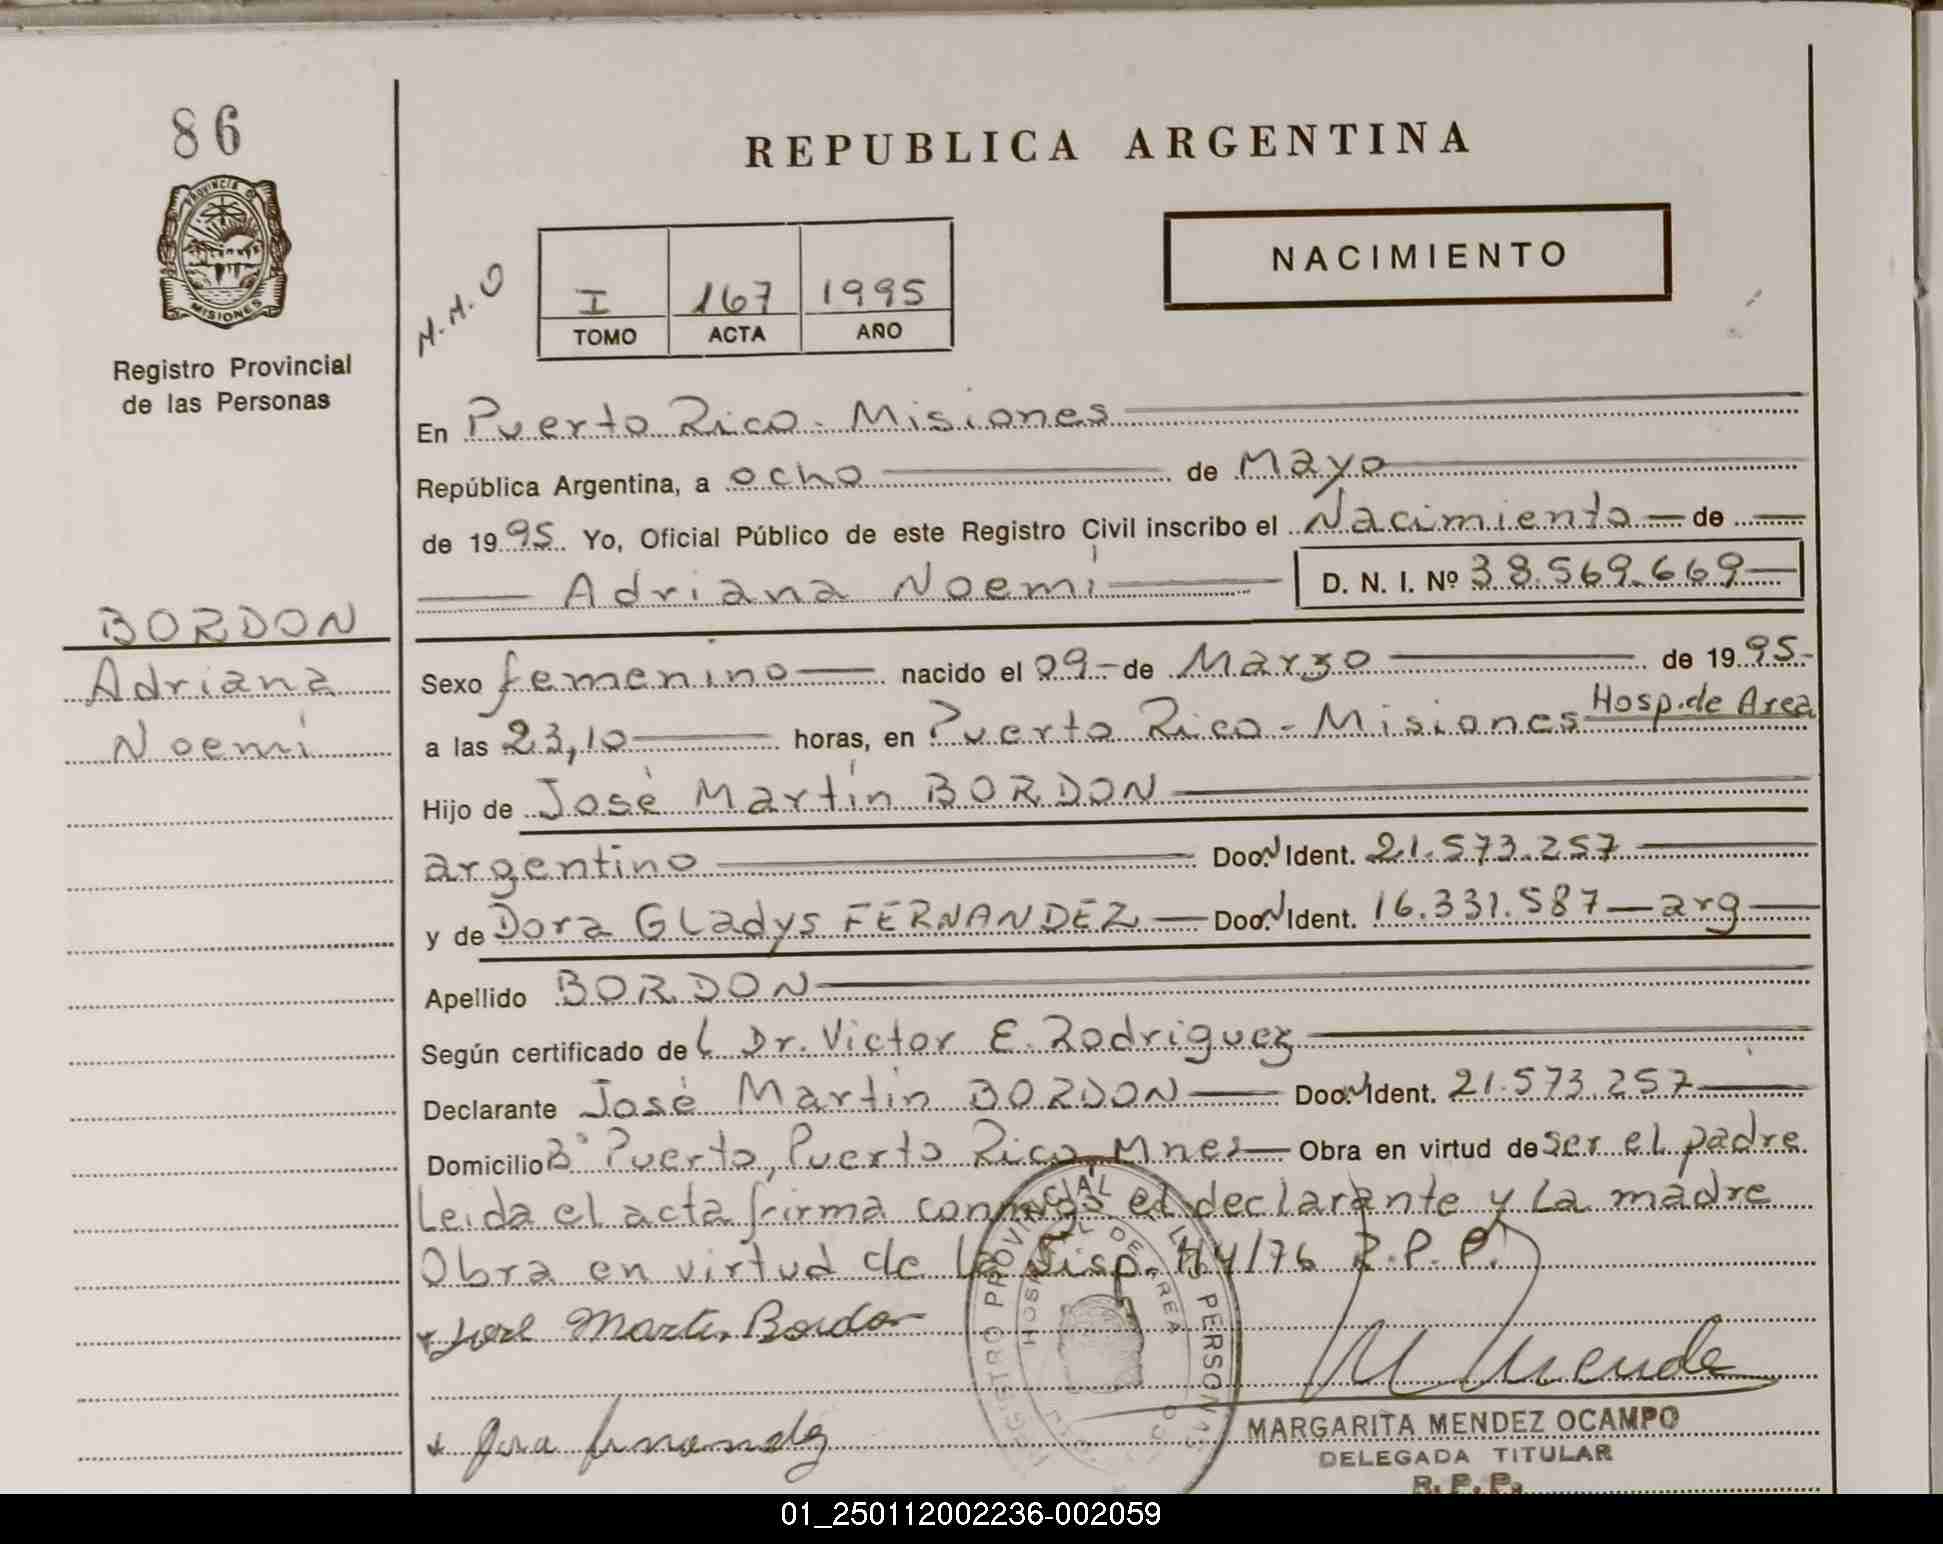 86
PROVINCIA DE
MISIONES
Registro Provincial
de las Personas
REPUBLICA ARGENTINA
NACIMIENTO
M.M.O
I 167 1995
TOMO ACTA AÑO
En Puerto Rico - Misiones
República Argentina, a ocho de Mayo
de 1995. Yo, Oficial Público de este Registro Civil inscribo el Nacimiento de
Adriana Noemí D. N. I. Nº 38.569.669
BORDON
Adriana
Noemí
Sexo femenino nacido el 09 de Marzo de 1995
a las 23,10 horas, en Puerto Rico - Misiones Hosp. de Area
Hijo de José Martín BORDON
argentino Doc. Ident. 21.573.257
y de Dora Gladys FERNANDEZ Doc. Ident. 16.331.587 - arg
Apellido BORDON
Según certificado del Dr. Victor E. Rodriguez
Declarante José Martín BORDON Doc. Ident. 21.573.257
Domicilio Bº Puerto, Puerto Rico, Mnes Obra en virtud de ser el padre
Leida el acta firma conmigo el declarante y la madre
Obra en virtud de la Disp. 114/76 R.P.P.
Jose Martin Bordon
REGISTRO PROVINCIAL DE LAS PERSONAS
HOSPITAL DE AREA
Dora Fernandez
MARGARITA MENDEZ OCAMPO
DELEGADA TITULAR
R.P.P.
01_250112002236-002059